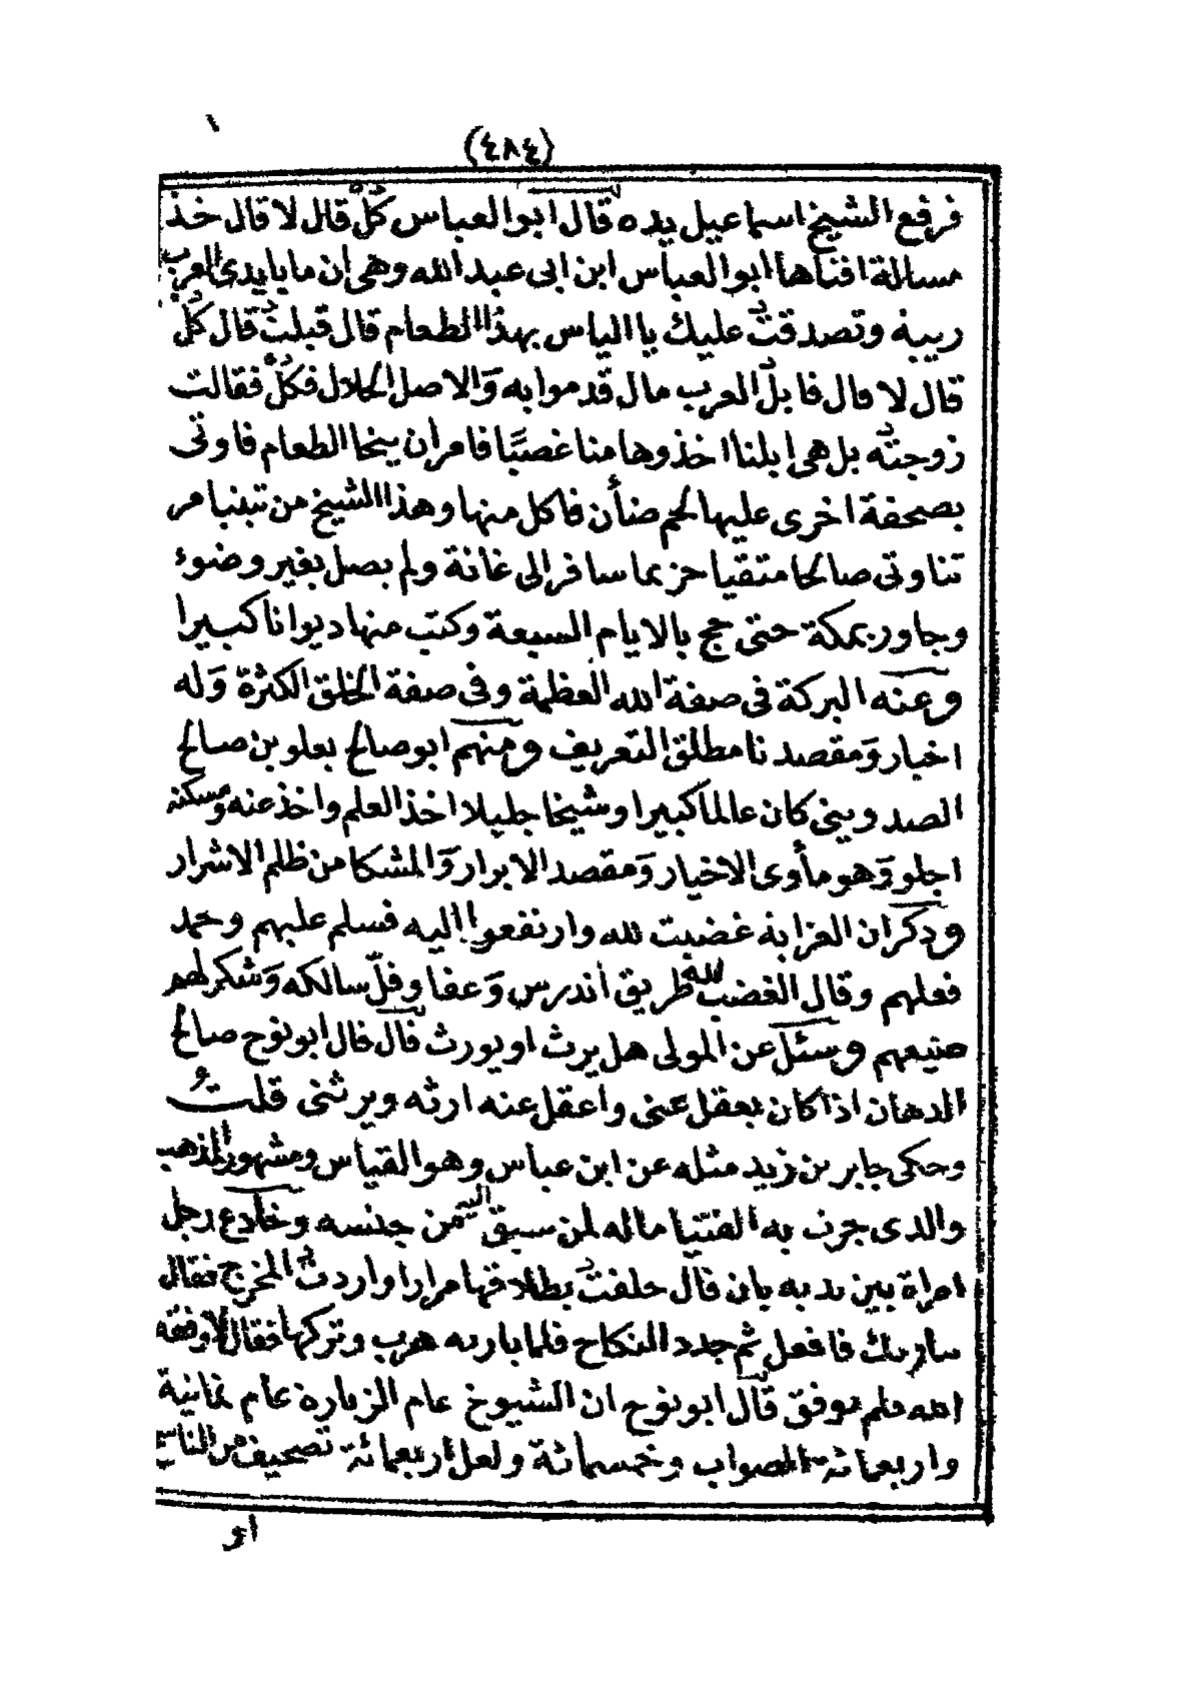 (٤٨٤)
فرفع الشيخ اسماعيل يده قال ابو العباس كُلْ قال لا قال خذ
مسالة افتاها ابو العباس ابن ابى عبد الله وهى ان ما بايدى العرب
ريبة وتصدقتُ عليك يا الياس بهذا الطعام قال قبلت قال كُلْ
قال لا قال فابل العرب مال قدموا به وَالاصل الحلال فكُلْ فقالت
زوجته بل هى ابلنا اخذوها منا غصبًا فامر ان ينحا الطعام فاوتى
بصحفة اخرى عليها لحم ضأن فاكل منها وهذا الشيخ من تينبامر
تناوتى صالحا متقيا حز بما سافر الى غانة ولم يصل بغير وضوء
وجاور بمكة حتى حج بالايام السبعة وكتب منها ديوانا كبيرا
وعنه البركة فى صفة الله العظمة وفى صفة الخلق الكثرة وَله
اخبار وَمقصدنا مطلق التعريف ومنهم ابو صالح يعلو بن صالح
الصدوينى كان عالما كبيرا وشيخا جليلا اخذ العلم واخذ عنه ومسكنه
اجلو وَهو مأوى الاخيار وَمقصد الابرار وَالمشكا من ظلم الاشرار
وذكر ان العزابة غضبت لله وارتفعوا اليه فسلم عليهم وحمد
فعلهم وقال الغضب لله طريق أندرس وَعفا وقلّ سالكه وَشكر لهم
صنيعهم وسئل عن المولى هل يرث او يورث قال قال ابو نوح صالح
الدهان اذا كان يعقل عنى واعقل عنه ارثه ويرثنى قلتُ
وحكى جابر بن زيد مثله عن ابن عباس وهو القياس ومشهور المذهب
والذى جرت به الفتيا ماله لمن سبق اليه من جنسه وخادع رجل
امراة بين يديه بان قال حلفت بطلاقها مرارا واردت المخرج فقال
سازيك فافعل ثم جدد النكاح فلما بارته هرب وتركها فقال لا وفقه
الله فلم يوفق قال ابو نوح ان الشيوخ عام الزيارة عام ثمانية
واربعمائة الصواب وخمسمائة ولعل اربعمائة تصحيف من الناسخ
او